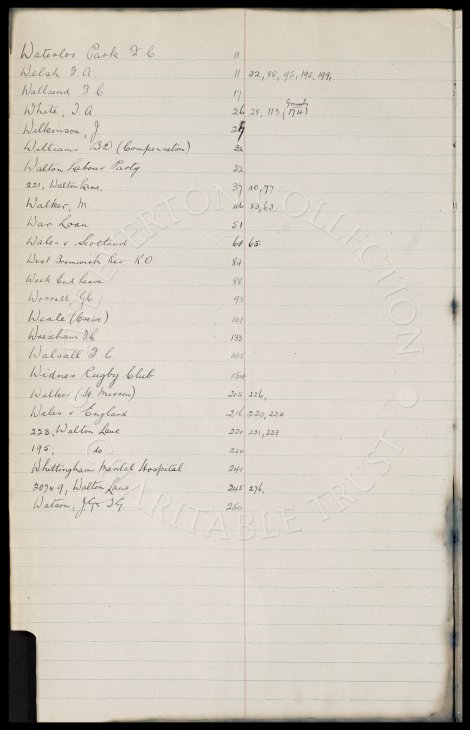 Waterloo Park F C 11
Welsh F.A. 11 22, 88, 95, 196, 199,
Wallsend F C 17
White, T. A. 26 28, 113, (174)
Wilkinson, J 27
Williams BE (Compensation) 32
Walton Labour Party 32
221, Walton Lane. 37 40, 77
Walker, M. 46 53, 63
War Loan 51
Wales v Scotland 64 65
West Bromwich Res K.O 84
Week End Leave 88
Worrall, 95
Weale (Crewe) 101
Wrexham F.C 133
Walsall F C. 145
Widnes Rugby Club 154
Walker (St Mirren) 205 226,
Wales v England 216 220, 224
223, Walton Lane 220 231, 233
195, do 220
Whittingham Mental Hospital 241
207 & 9, Walton Lane 245 276,
Watson, 290
EVERTON COLLECTION
CHARITABLE TRUST